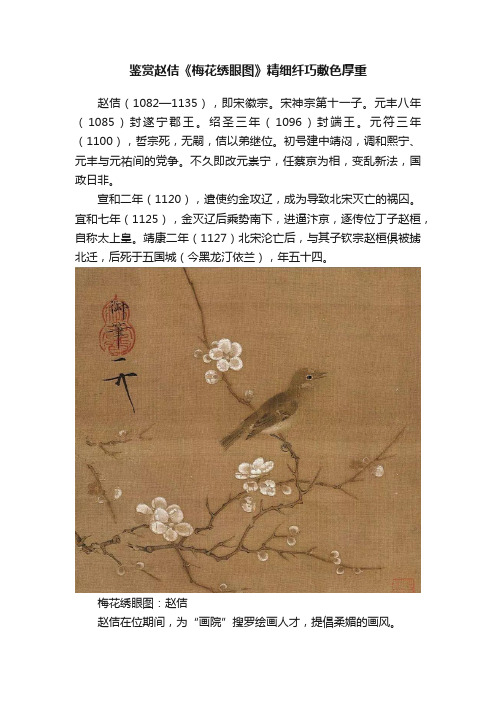 鉴赏赵佶《梅花绣眼图》精细纤巧敷色厚重
赵佶（1082—1135），即宋徽宗。宋神宗第十一子。元丰八年
（1085）封遂宁郡王。绍圣三年（1096）封端王。元符三年
（1100），哲宗死，无嗣，佶以弟继位。初号建中靖闷，调和熙宁、
元丰与元祐间的党争。不久即改元崇宁，任蔡京为相，变乱新法，国
政日非。
宣和二年（1120），遣使约金攻辽，成为导致北宋灭亡的祸囚。
宜和七年（1125），金灭辽后乘势南下，进逼汴京，逐传位丁子赵桓，
自称太上皇。靖康二年（1127）北宋沦亡后，与其子钦宗赵桓俱被掳
北迁，后死于五国城（今黑龙汀依兰），年五十四。
御筆
梅花绣眼图：赵佶
赵佶在位期间，为“画院”搜罗绘画人才，提倡柔媚的画风。